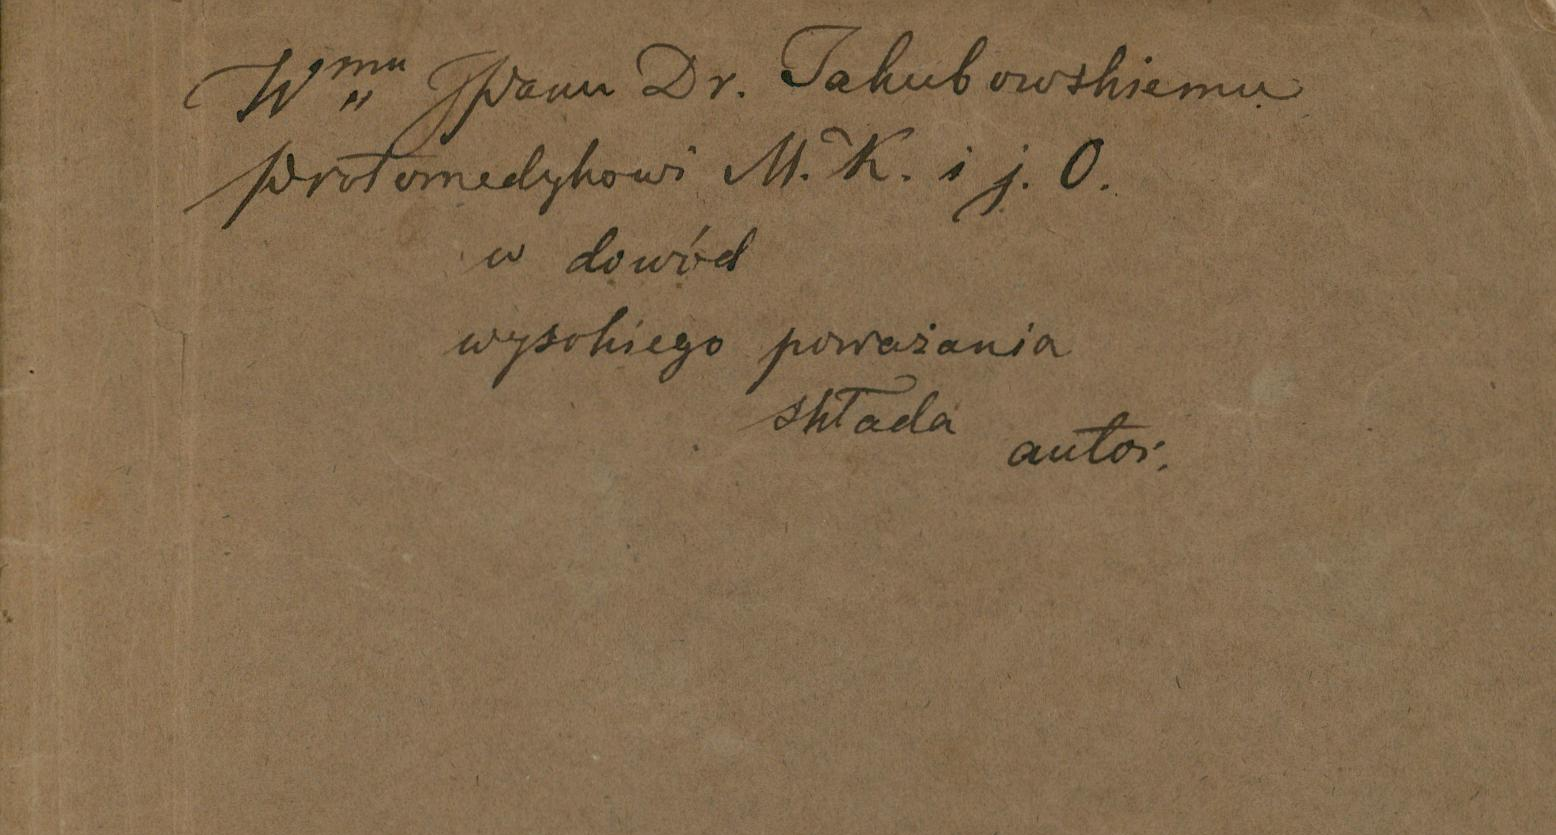 Wgmu JPanu Dr. Jakubowskiemu
protomedykowi M. K. i j. O.
w dowód
wysokiego poważania
składa
autor.